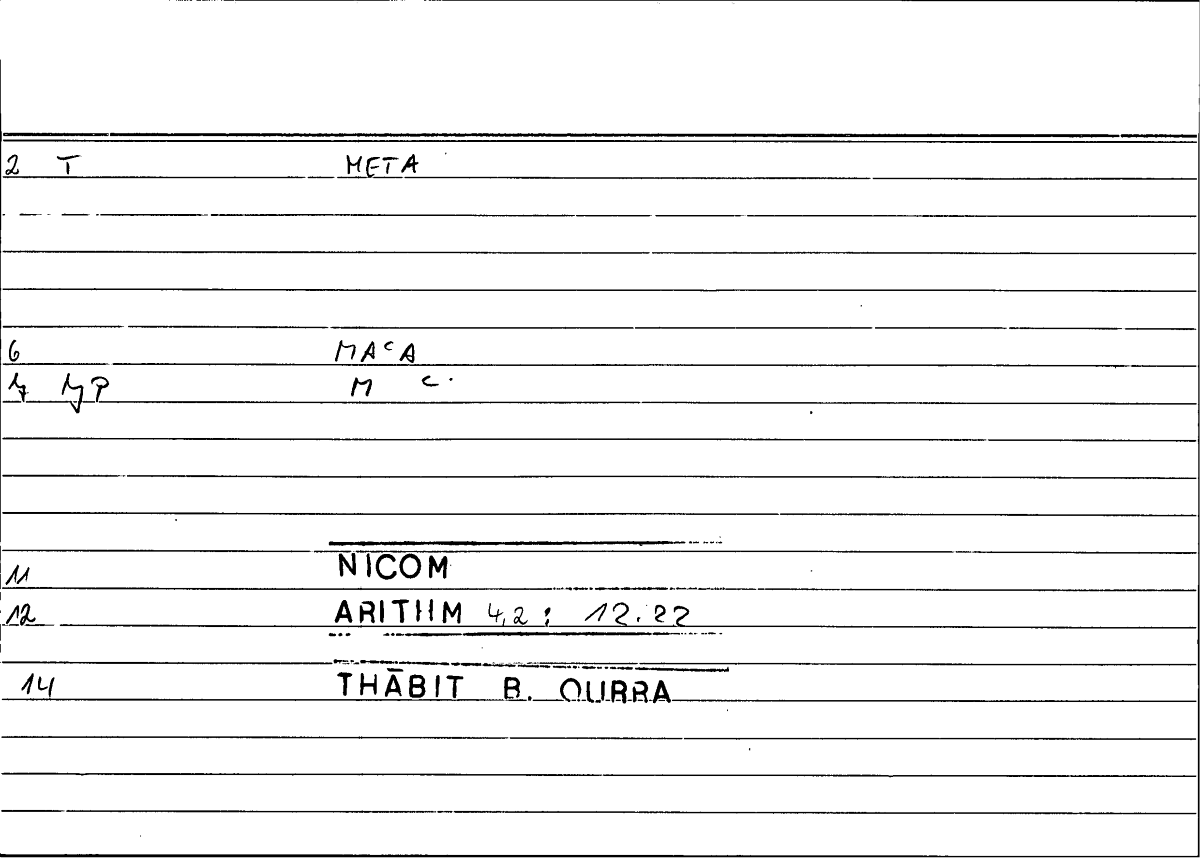 2 T META
6 MAᶜA
M ᶜ.
11 NICOM
12 ARITHM 4,2 : 12.22
14 THĀBIT B. QURRA